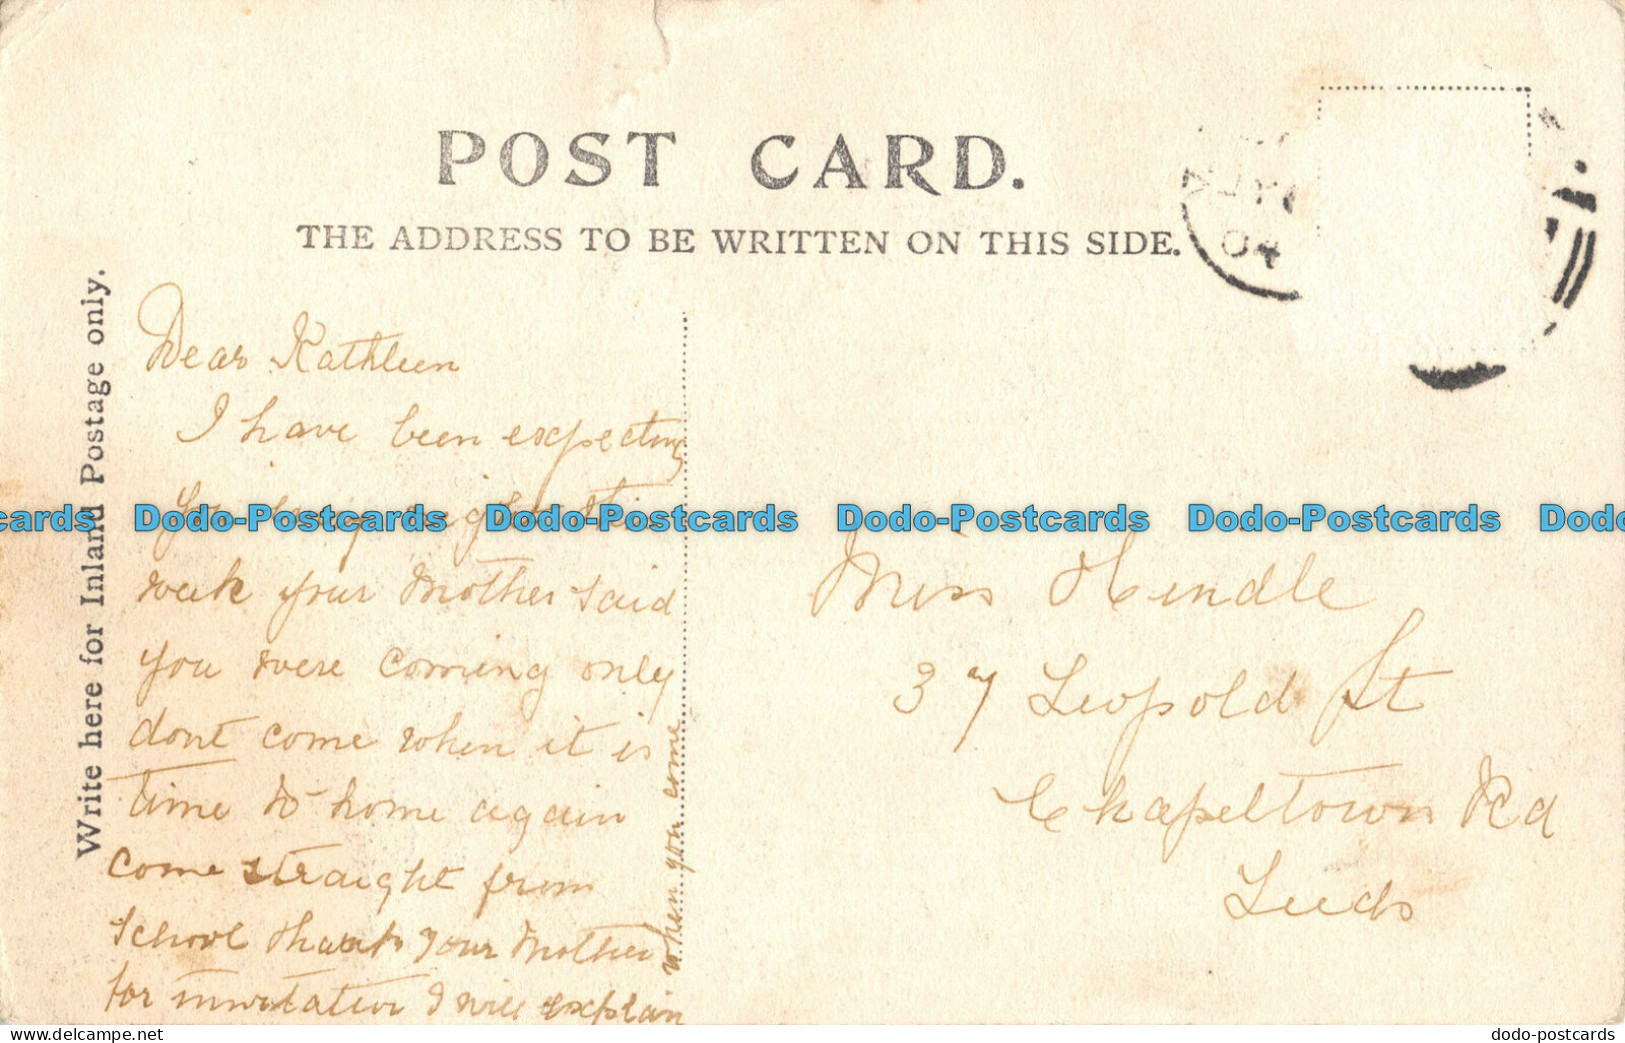 POST CARD.
THE ADDRESS TO BE WRITTEN ON THIS SIDE.
Write here for Inland Postage only.
04
Dear Kathleen
I have been expecting
you every night this
week your Mother said
you were coming only
dont come when it is
time to home again
come straight from
School thank your Mother
for invitation I will explain
when you come
Miss Hindle
37 Leopold St
Chapeltown Rd
Leeds
cards Dodo-Postcards Dodo-Postcards Dodo-Postcards Dodo-Postcards Dodo
delcampe.net
dodo-postcards